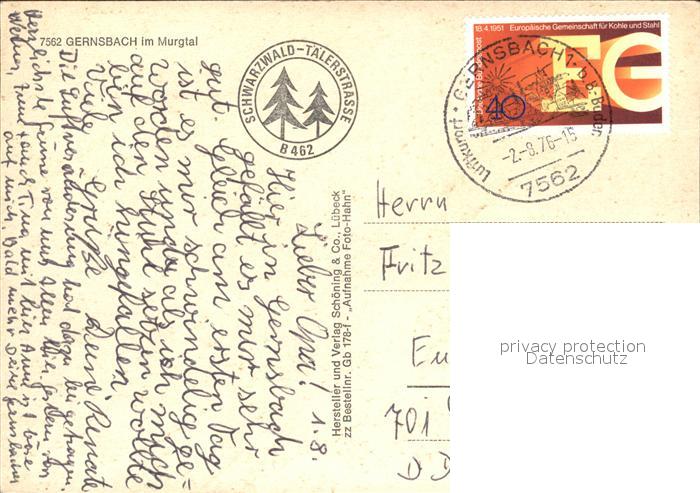 7562 GERNSBACH im Murgtal
SCHWARZWALD-TÄLERSTRASSE
B 462
18.4.1951 Europäische Gemeinschaft für Kohle und Stahl
Deutsche Bundespost
EG
40
Luftkurort • GERNSBACH 1 b. B.-Baden
-2.-8.76-15
7562
1.8.
Lieber Opa!
Hier in Gernsbach
gefällt es mir sehr
gut. Gleich am ersten Tag
ist es mir schwindelig ge-
worden und als ich mich
auf den Stuhl setzen wollte
bin ich hingefallen
Viele Grüße Deine Renate
Die Luftveränderung hat dazu beigetragen.
Herzlichste Grüße von uns Allen
Hersteller und Verlag Schöning & Co., Lübeck
zz Bestellnr. Gb 178-f - „Aufnahme Foto-Hahn"
Herrn
Fritz
Eu
701
DD
privacy protection
Datenschutz